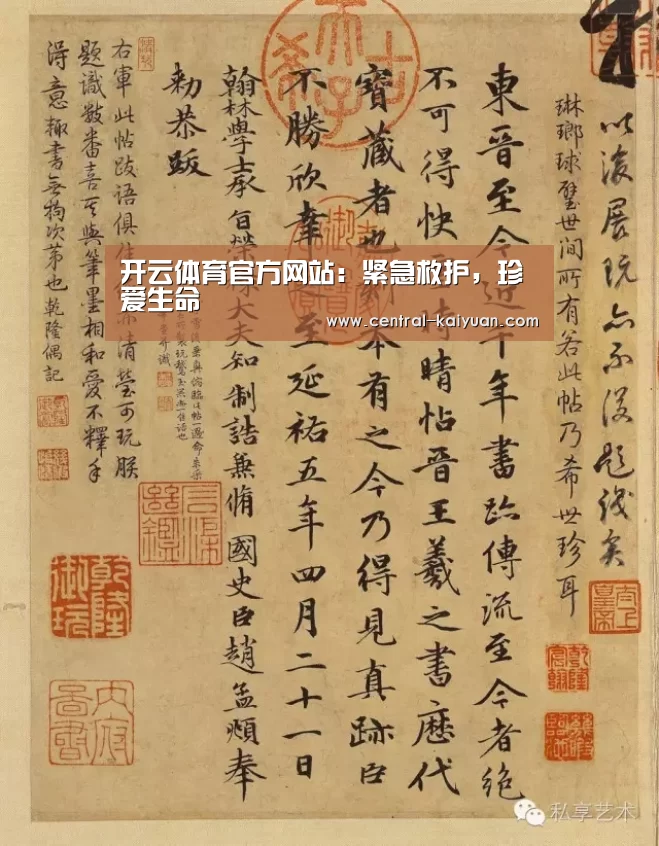 以後展玩亦不復題識矣
琳瑯球璧世間所有若此帖乃希世珍耳
東晉至今近千年書跡傳流至今者絕
不可得快 時晴帖晉王羲之書歷代
寶藏者也 本有之今乃得見真跡臣
不勝欣幸 至延祐五年四月二十一日
翰林學士承旨榮 大夫知制誥兼脩國史臣趙孟頫奉
勅恭跋
右軍此帖跋語俱佳 清瑩可玩朕
題識數番喜其與筆墨相和愛不釋手
得意輒書無拘次第也乾隆偶記
开云体育官方网站：紧急救护，珍
爱生命
www.central-kaiyuan.com
乾隆
御玩
内府
古希
私享艺术